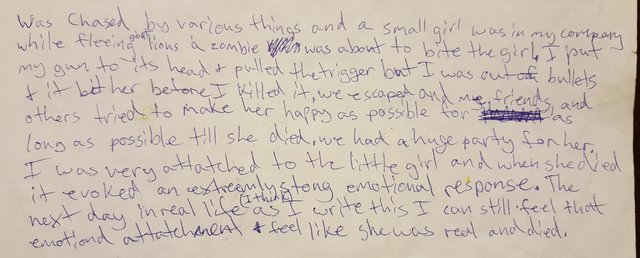 Was chased by various things and a small girl was in my company
while fleeing giant lions a zombie was about to bite the girl, I put
my gun to its head & pulled the trigger but I was out of bullets
& it bit her before I killed it, we escaped and me, friends, and
others tried to make her happy as possible for as
long as possible till she died, we had a huge party for her.
I was very attatched to the little girl and when she died
it evoked an extreemly stong emotional response. The
next day in real life (I think) as I write this I can still feel that
emotional attatchment & feel like she was real and died.